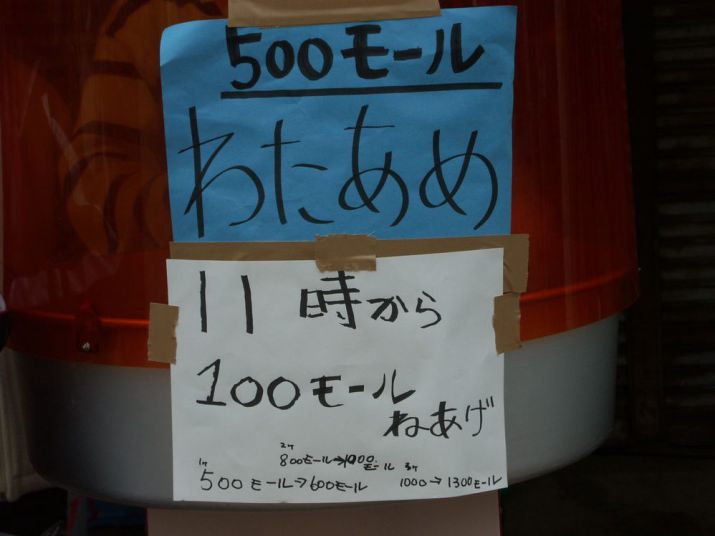 500モール
わたあめ
11時から
100モール
ねあげ
2ケ
800モール→1000モール
1ケ
500モール→600モール
3ケ
1000→1300モール